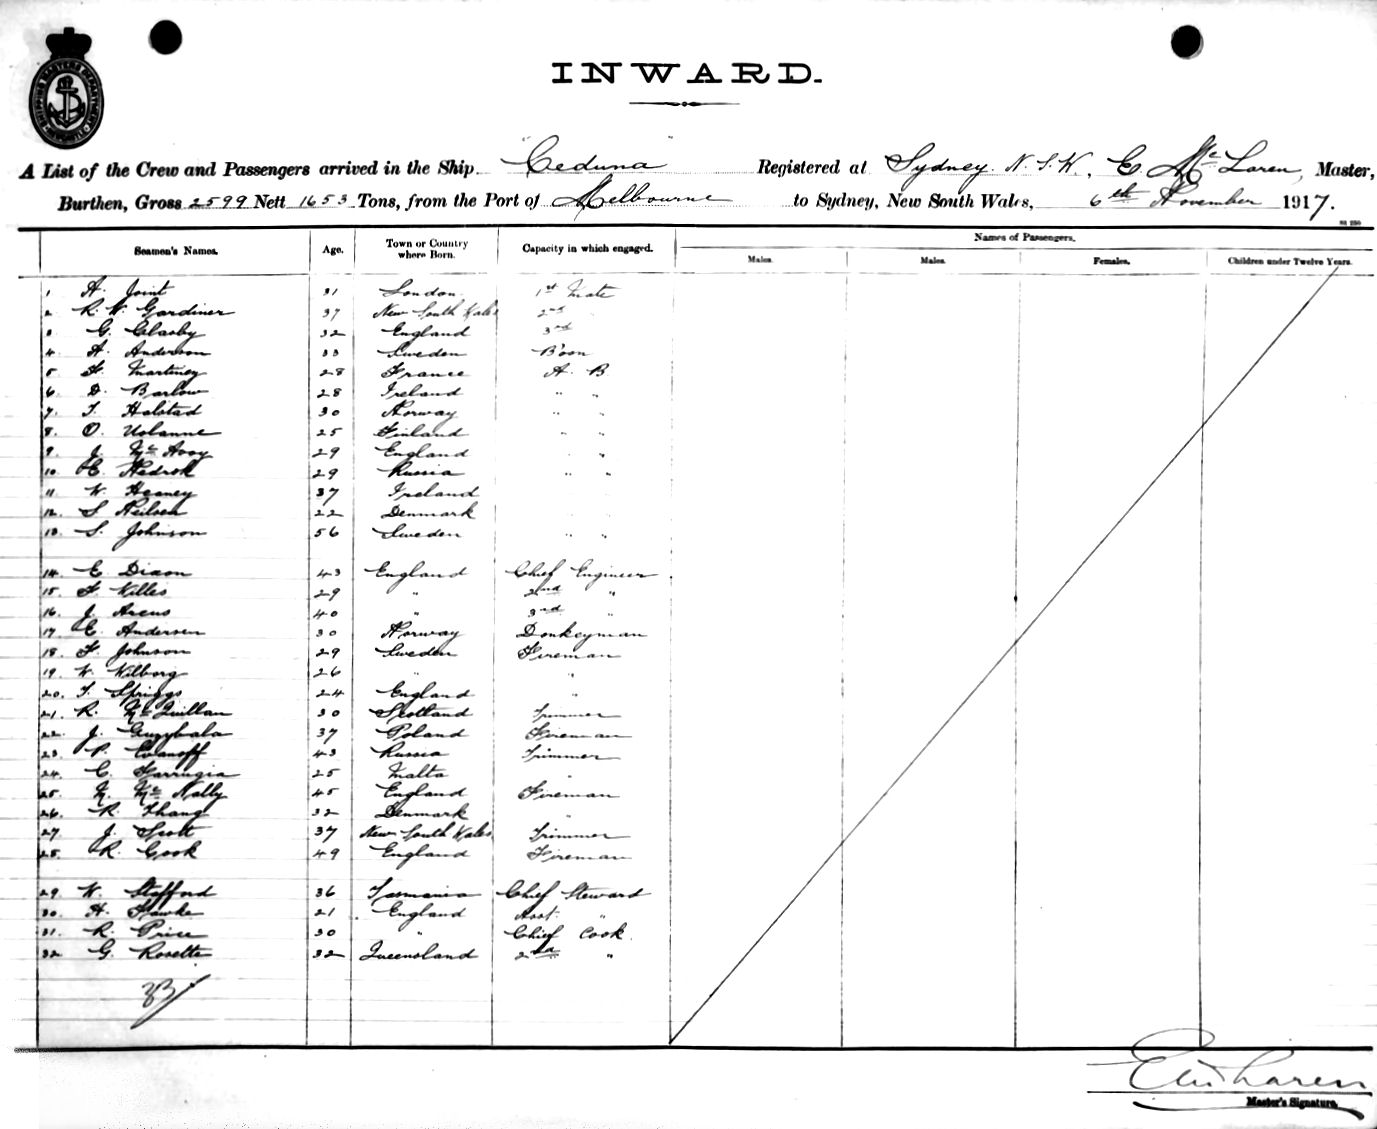 SHIPPING MASTERS DEPARTMENT
INWARD.
A List of the Crew and Passengers arrived in the Ship "Ceduna" Registered at Sydney. N.S.W. C. McLaren, Master,
Burthen, Gross 2599 Nett 1653 Tons, from the Port of Melbourne to Sydney, New South Wales, 6th November 1917.
Names of Passengers.
Seamen's Names. Age. Town or Country where Born. Capacity in which engaged. Males. Males. Females. Children under Twelve Years.
1 A. Joint 31 London 1st Mate
2 R. W. Gardiner 37 New South Wales 2nd
3 G. Clasby 32 England 3rd
4. A. Anderson 33 Sweden Bosn
5 F. Martiney 28 France A. B
6. D. Barlow 28 Ireland " "
7. T. Halstad 30 Norway " "
8. O. Uolanne 25 Finland " "
9. J. McAvoy 29 England " "
10. C. Hedrok 29 Russia " "
11. W. Heaney 37 Ireland " "
12. S. Neilsen 22 Denmark " "
13. S. Johnson 56 Sweden " "
14. E. Dixon 43 England Chief Engineer
15. F. Willis 29 " 2nd "
16. J. Arcus 40 " 3rd "
17 C. Andersen 30 Norway Donkeyman
18. F. Johnson 29 Sweden Fireman
19. W. Wilborg 26 " "
20. T. Spriggs 24 England "
21. R. McQuillan 30 Scotland Trimmer
22. J. 37 Poland Fireman
23 P. Evanoff 43 Russia Trimmer
24. C. Farrugia 25 Malta "
25. M. McNally 45 England Fireman
26. R. Thang 32 Denmark "
27. J. Scott 37 New South Wales Trimmer
28. R. Cook 49 England Fireman
29. W. Stafford 36 Tasmania Chief Steward
30. H. Hawke 21 England Asst. "
31. R. Price 30 " Chief Cook
32 G. Rosette 32 Queensland 2nd "
Master's Signature.